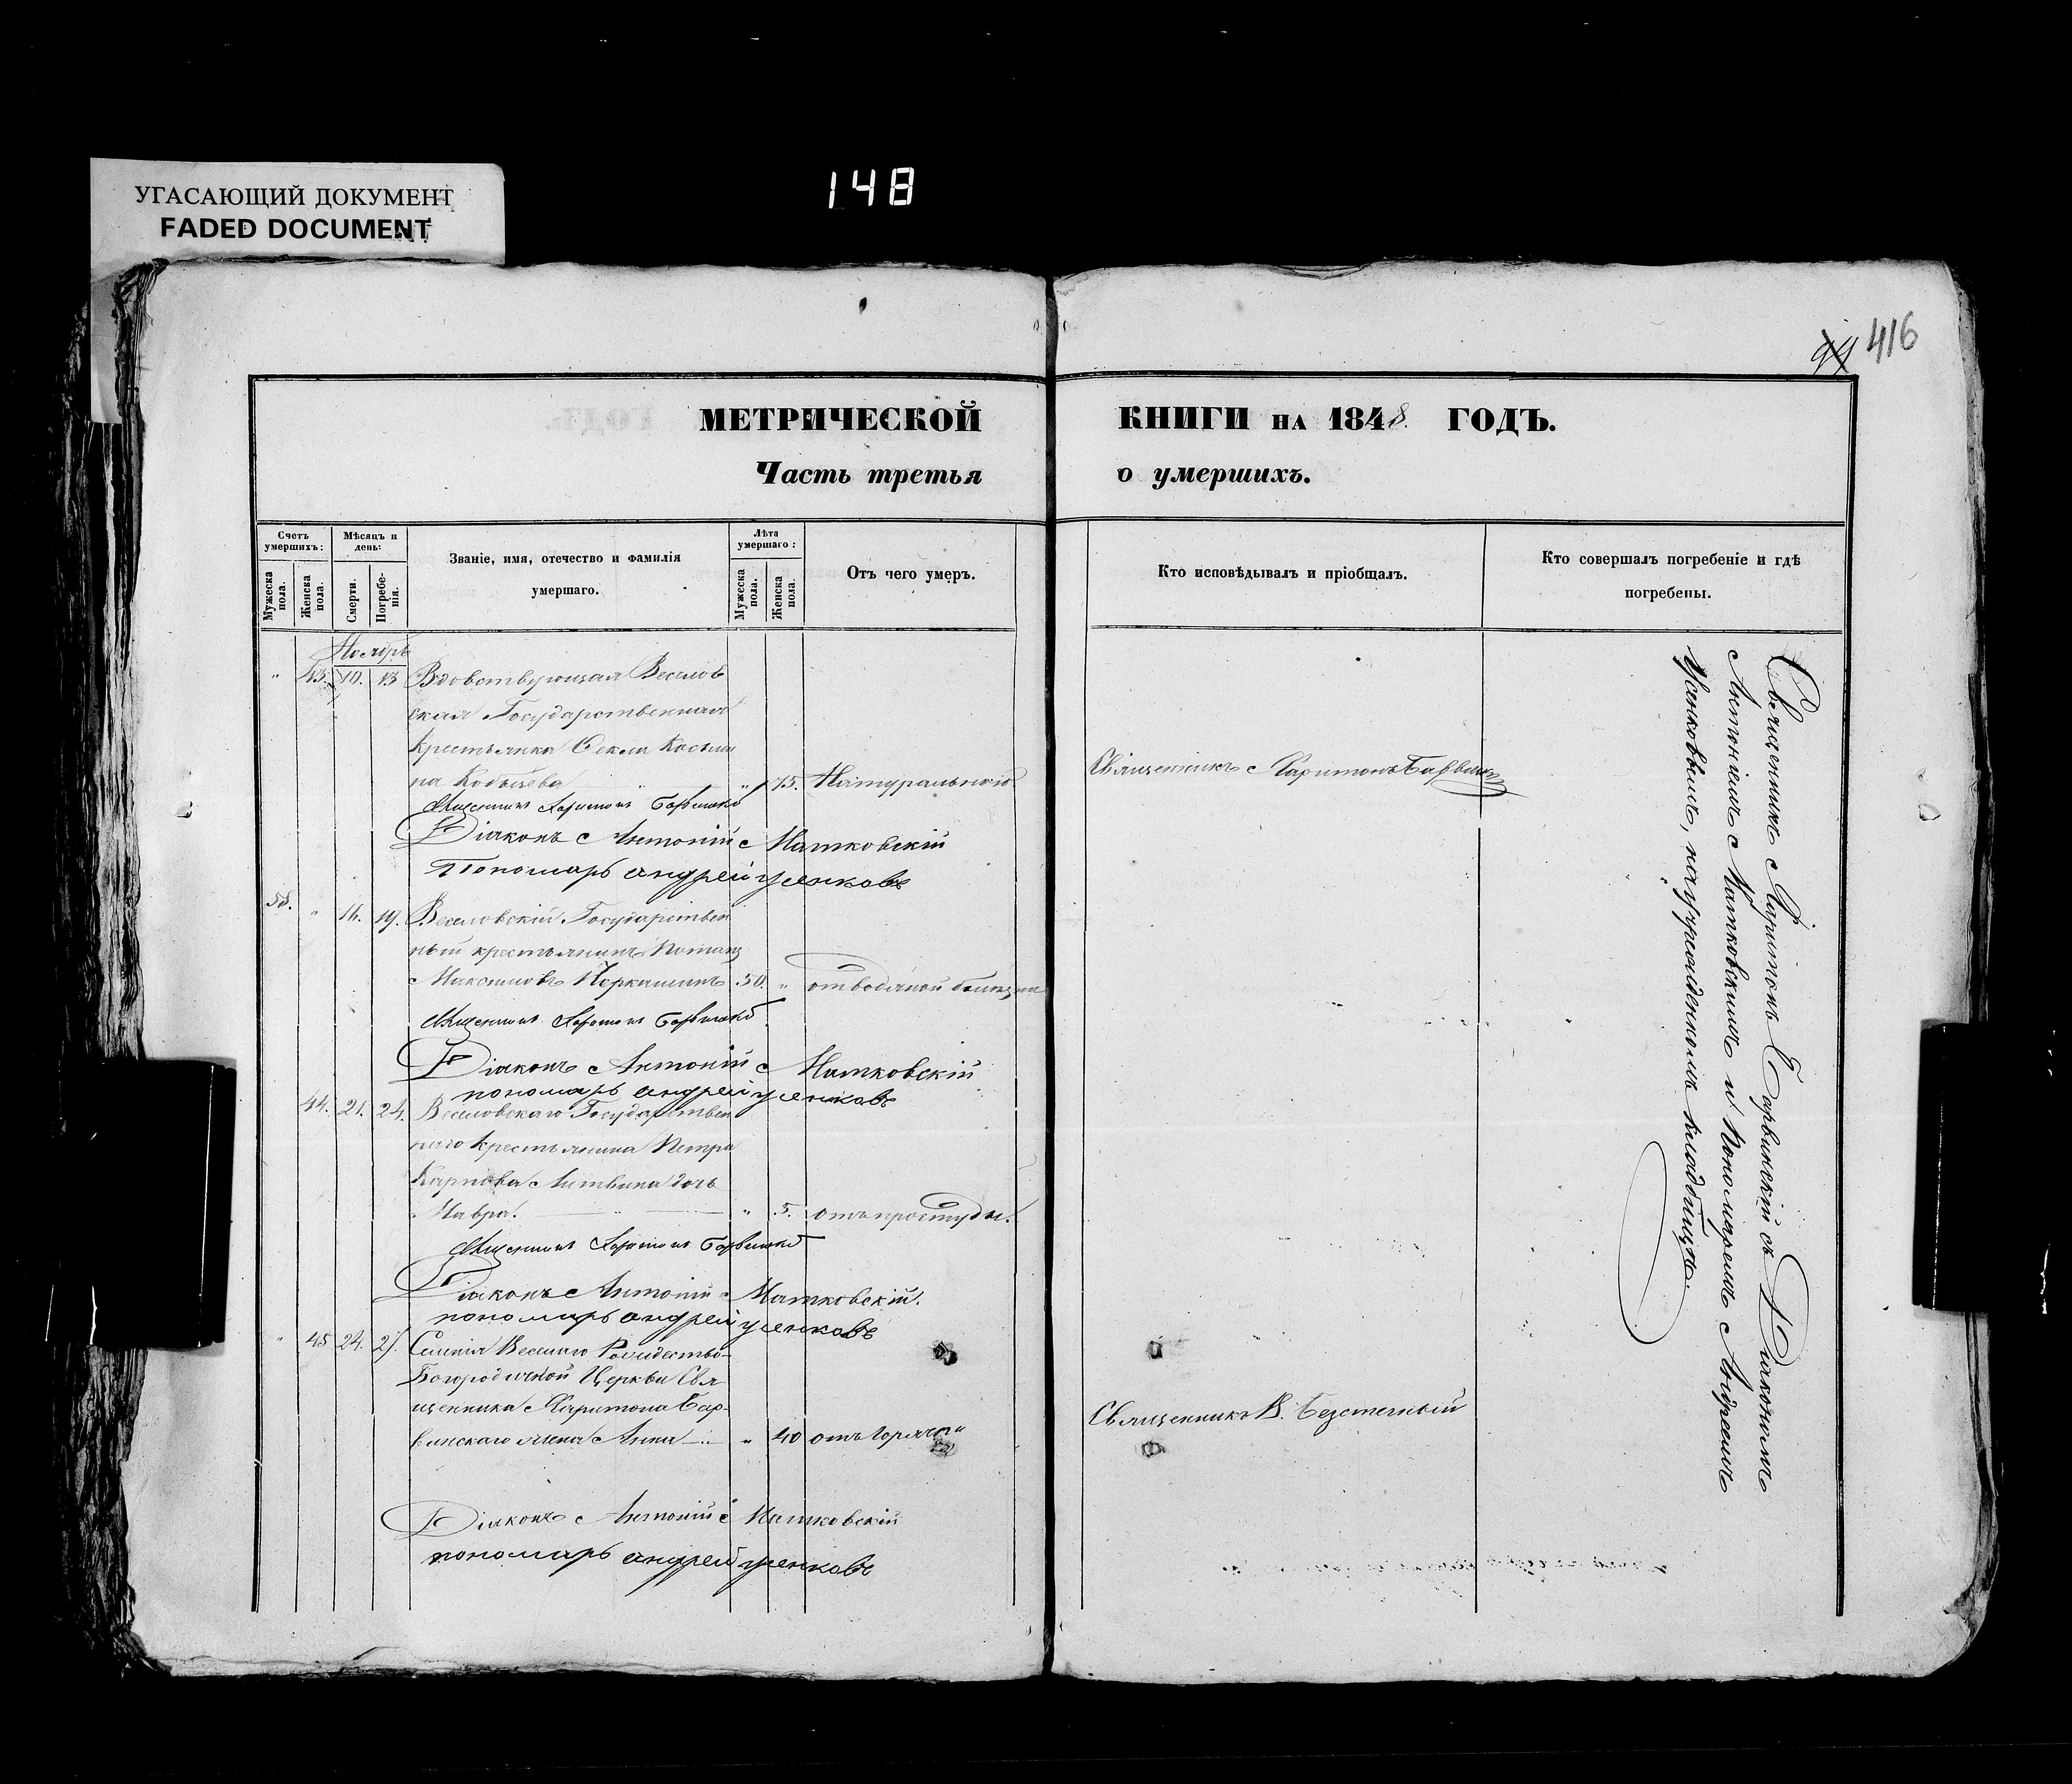 УГАСАЮЩИЙ ДОКУМЕНТ
FADED DOCUMENT
148
99 416
МЕТРИЧЕСКОЙ КНИГИ НА 1848. ГОДЪ.
Часть третья о умершихъ.
Счетъ умершихъ:
Мужеска пола.
Женска пола.
Мѣсяцъ и день:
Смерти.
Погребенія.
Званіе, имя, отечество и фамилія
умершаго.
Лѣта умершаго:
Мужеска пола.
Женска пола.
Отъ чего умеръ.
Кто исповѣдывалъ и пріобщалъ.
Кто совершалъ погребеніе и гдѣ
погребены.
Ноябрь
" 43. 10. 13 Вдовствующая Веселов
ская Государственная
крестьянка Фекла Косьми
на " 75. Натурально
Священникъ Харитонъ
Священникъ Харитонъ
Діаконъ Антоній Матковскій
Пономарь андрей усенковъ
58. " 16. 19. Веселовскій Государствен
ный крестьянинъ Потапъ
Максимовъ 50. " отъ водяной
Священникъ Харитонъ
Діаконъ Антоній Матковскій
пономарь андрей усенковъ
44. 21. 24. Веселовскаго Государствен
наго крестьянина Петра
Карпова Литвина дочь
Мавра. " 5. отъ простуды.
Священникъ Харитонъ
Діаконъ Антоній Матковскій.
пономарь андрей усенковъ
" 45 24. 27. Селенія Веселаго Рождество-
Богородичной Церкви Свя
щенника Харитона Бар-
винскаго жена Анна " 40 отъ горячки
Священникъ В.
Діаконъ Антоній Матковскій
пономарь андрей усенковъ
Священникъ Харитонъ Барвинскій съ Діакономъ
Антоніемъ Матковскимъ и Пономаремъ Андреемъ
Усенковымъ, на учрежденномъ кладбищѣ.